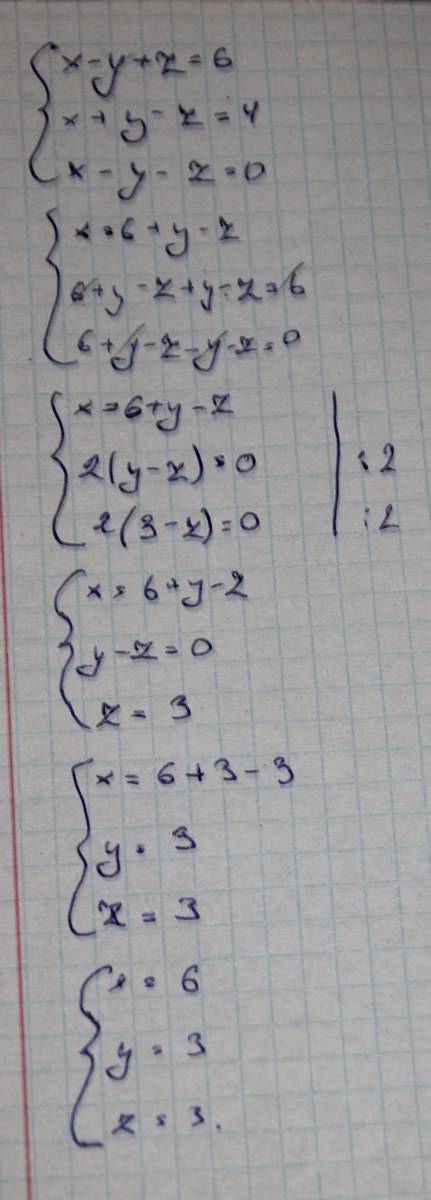 x - y + z = 6
x + y - z = 4
x - y - z = 0
x = 6 + y - z
6 + y - z + y - z = 6
6 + y - z - y - z = 0
x = 6 + y - z
2(y - z) = 0 | : 2
2(3 - z) = 0 | : 2
x = 6 + y - z
y - z = 0
z = 3
x = 6 + 3 - 3
y = 3
z = 3
x = 6
y = 3
z = 3.